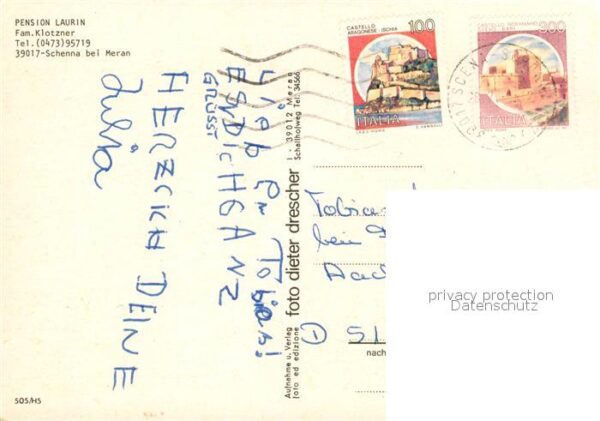 PENSION LAURIN
Fam.Klotzner
Tel.(0473)95719
39017-Schenna bei Meran
CASTELLO
ARAGONESE - ISCHIA
100
ITALIA
300
ITALIA
39017 SCENA
Lieber Tobias!
ES DICH GANZ
GRÜSST
HERZCIKH DEINE
Julia
foto dieter drescher
I - 39012 Meran
Schallhofweg Tel. 34566
Aufnahme u. Verlag
foto ed edizione
Tobias
bei
privacy protection
Datenschutz
nach
505/HS